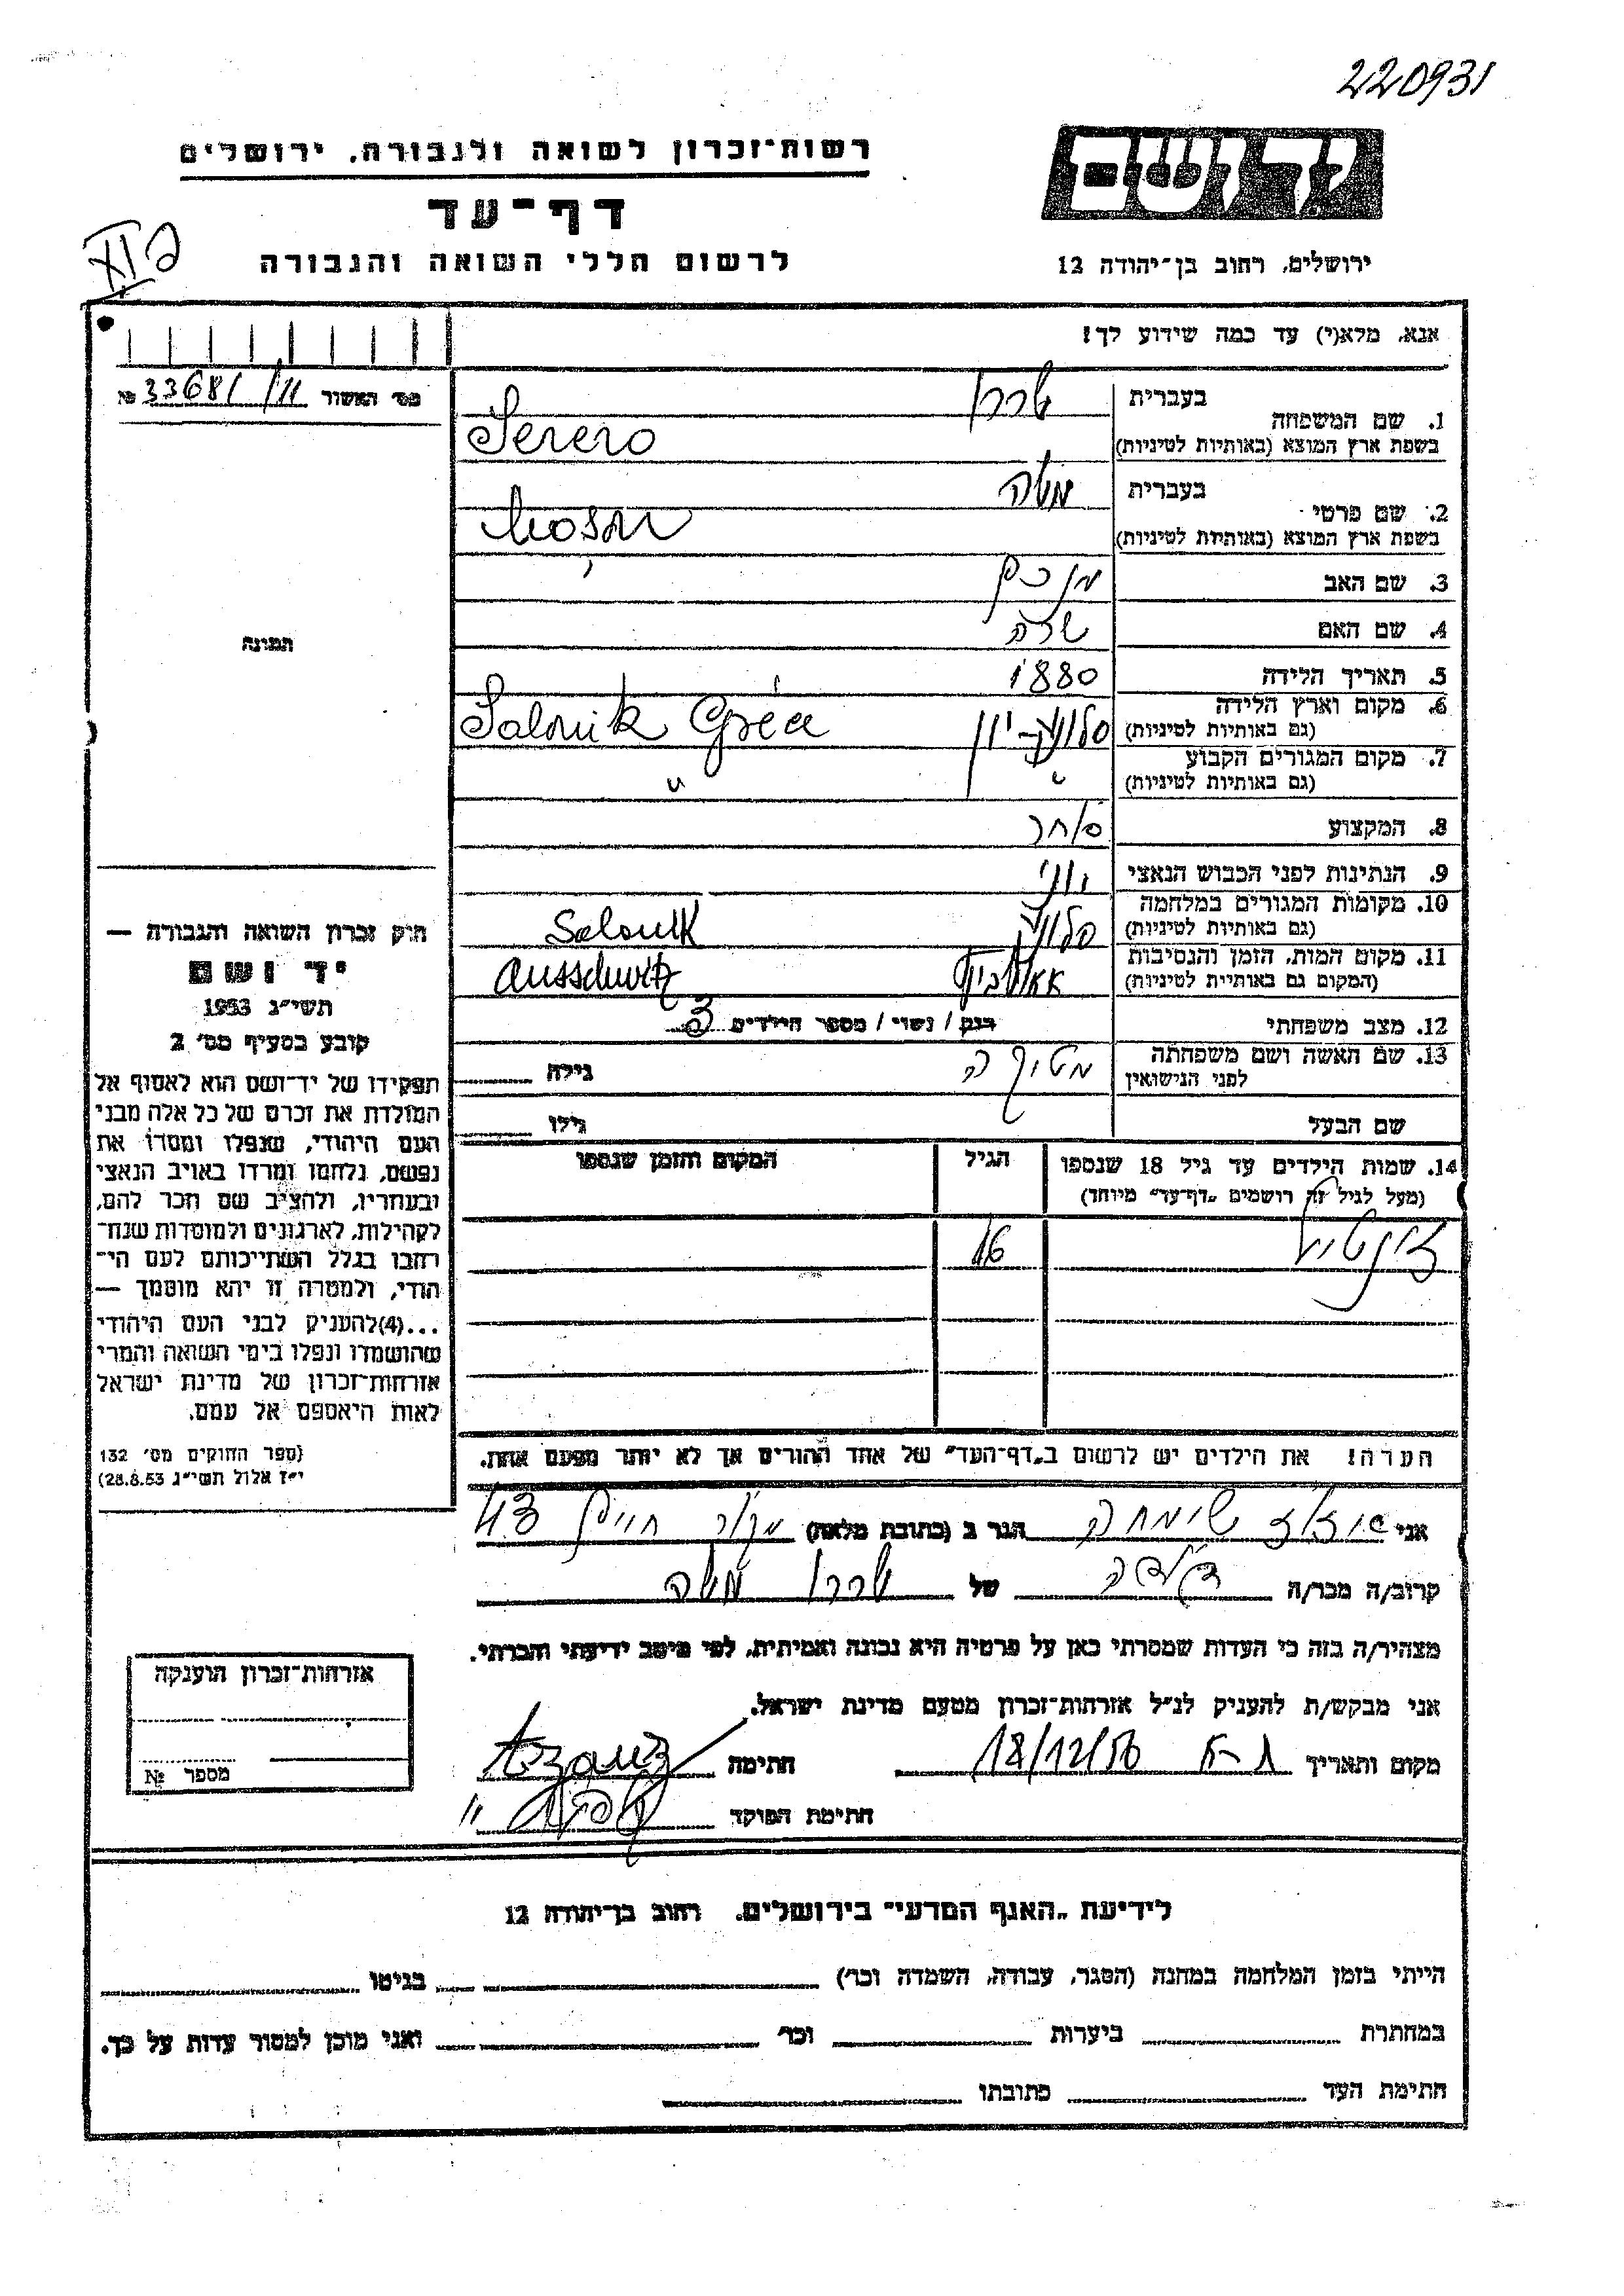 220931
יד ושם
רשות־זכרון לשואה ולגבורה, ירושלים
דף־עד
לרשום חללי השואה והגבורה
ירושלים, רחוב בן־יהודה 12
אנא, מלא(י) עד כמה שידוע לך!
מס' האשור № 33681/11
1. שם המשפחה
בעברית
בשפת ארץ המוצא (באותיות לטיניות)
Serero
2. שם פרטי
בעברית משה
בשפת ארץ המוצא (באותיות לטיניות)
3. שם האב
4. שם האם שרה
5. תאריך הלידה 1880
6. מקום וארץ הלידה
(גם באותיות לטיניות)
Salonik Grèce
7. מקום המגורים הקבוע "
(גם באותיות לטיניות) "
8. המקצוע סוחר
9. הנתינות לפני הכבוש הנאצי יוני
10. מקומות המגורים במלחמה
(גם באותיות לטיניות) Salonik
11. מקום המות, הזמן והנסיבות
(המקום גם באותיות לטיניות) Ausschwitz
12. מצב משפחתי רווק / נשוי / מספר הילדים 3
13. שם האשה ושם משפחתה
לפני הנישואין
גילה
שם הבעל
גילו
14. שמות הילדים עד גיל 18 שנספו
(מעל לגיל זה רושמים "דף־עד" מיוחד)
הגיל
המקום והזמן שנספו
16
הערה! את הילדים יש לרשום ב"דף־העד" של אחד ההורים אך לא יותר מפעם אחת.
תמונה
חוק זכרון השואה והגבורה —
יד ושם
תשי"ג 1953
קובע בסעיף מס' 2
תפקידו של יד־ושם הוא לאסוף אל
המולדת את זכרם של כל אלה מבני
העם היהודי, שנפלו ומסרו את
נפשם, נלחמו ומרדו באויב הנאצי
ובעוזריו, ולהציב שם וזכר להם,
לקהילות, לארגונים ולמוסדות שנח־
רבו בגלל השתייכותם לעם הי־
הודי, ולמטרה זו יהא מוסמך —
...(4)להעניק לבני העם היהודי
שהושמדו ונפלו בימי השואה והמרי
אזרחות־זכרון של מדינת ישראל
לאות היאספם אל עמם.
(ספר החוקים מס' 132
י"ז אלול תשי"ג 28.8.53)
אני שימחה הגר ב (כתובת מלאה) מקור חיים 43
קרוב/ה מכר/ה של משה
מצהיר/ה בזה כי העדות שמסרתי כאן על פרטיה היא נכונה ואמיתית, לפי מיטב ידיעתי והכרתי.
אני מבקש/ת להעניק לנ"ל אזרחות־זכרון מטעם מדינת ישראל.
מקום ותאריך 18/12/56 חתימה
חתימת הפוקד
אזרחות־זכרון הוענקה
מספר №
לידיעת "האגף המדעי" בירושלים, רחוב בן־יהודה 12
הייתי בזמן המלחמה במחנה (הסגר, עבודה, השמדה וכו') בגיטו
במחתרת ביערות וכו' ואני מוכן למסור עדות על כך.
חתימת העד כתובתו